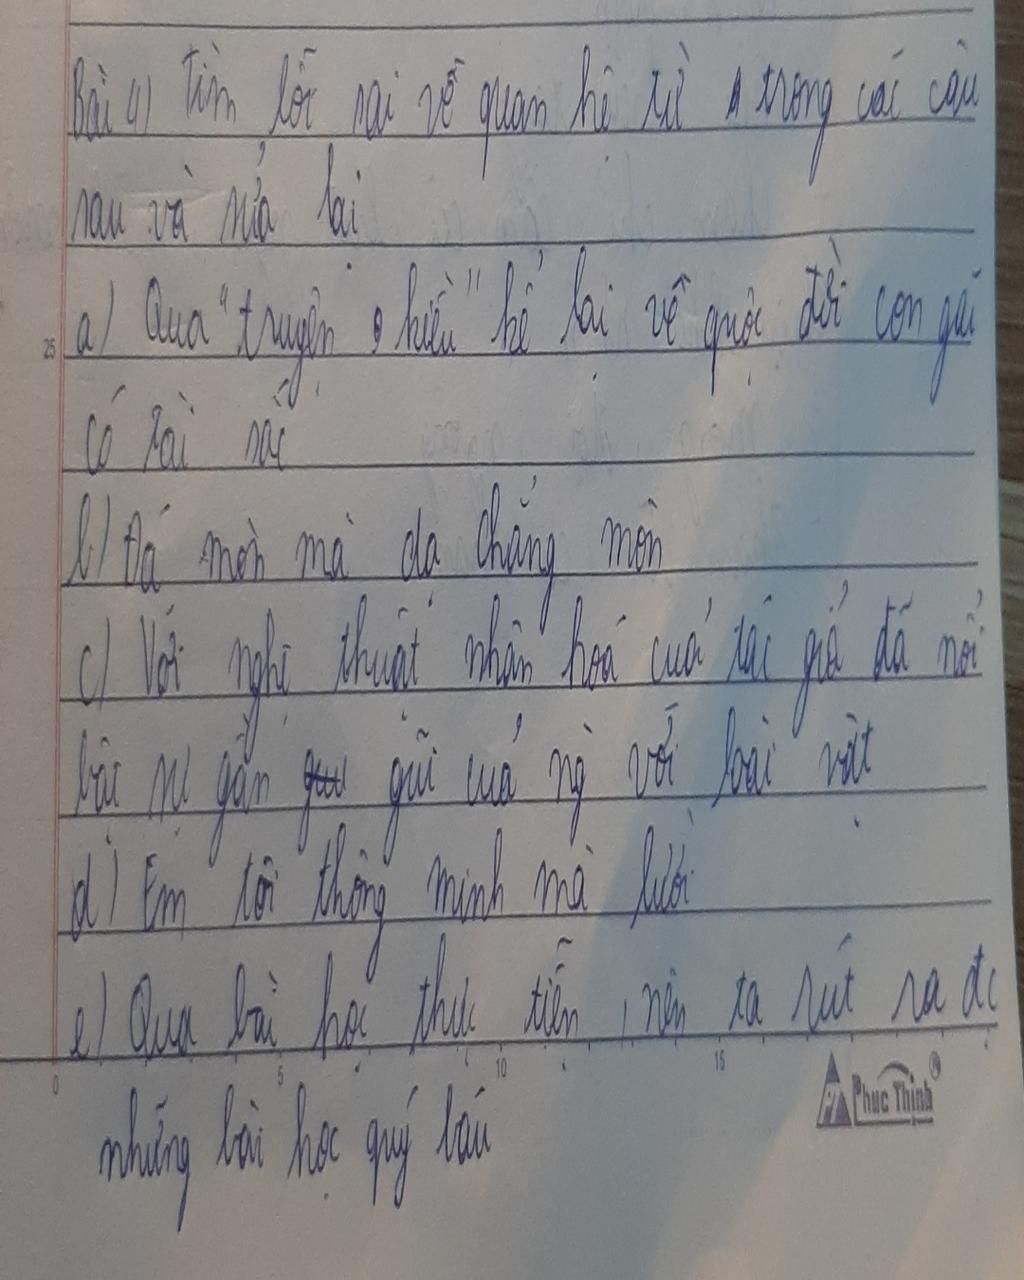 Bài 4) Tìm lỗi sai về quan hệ từ trong các câu
sau và sửa lại
a) Qua "truyện kiều" kể lại về cuộc đời con gái
có tài sắc
b) Đá mòn mà dạ chẳng mòn
c) Với nghệ thuật nhân hoá của tác giả đã nổi
bật sự gần gũi của ng với loài vật
d) Em tôi thông minh mà lười
25
e) Qua bài học thực tiễn, nên ta rút ra đc
0 5 10 15
Phuc Thịnh
những bài học quý báu